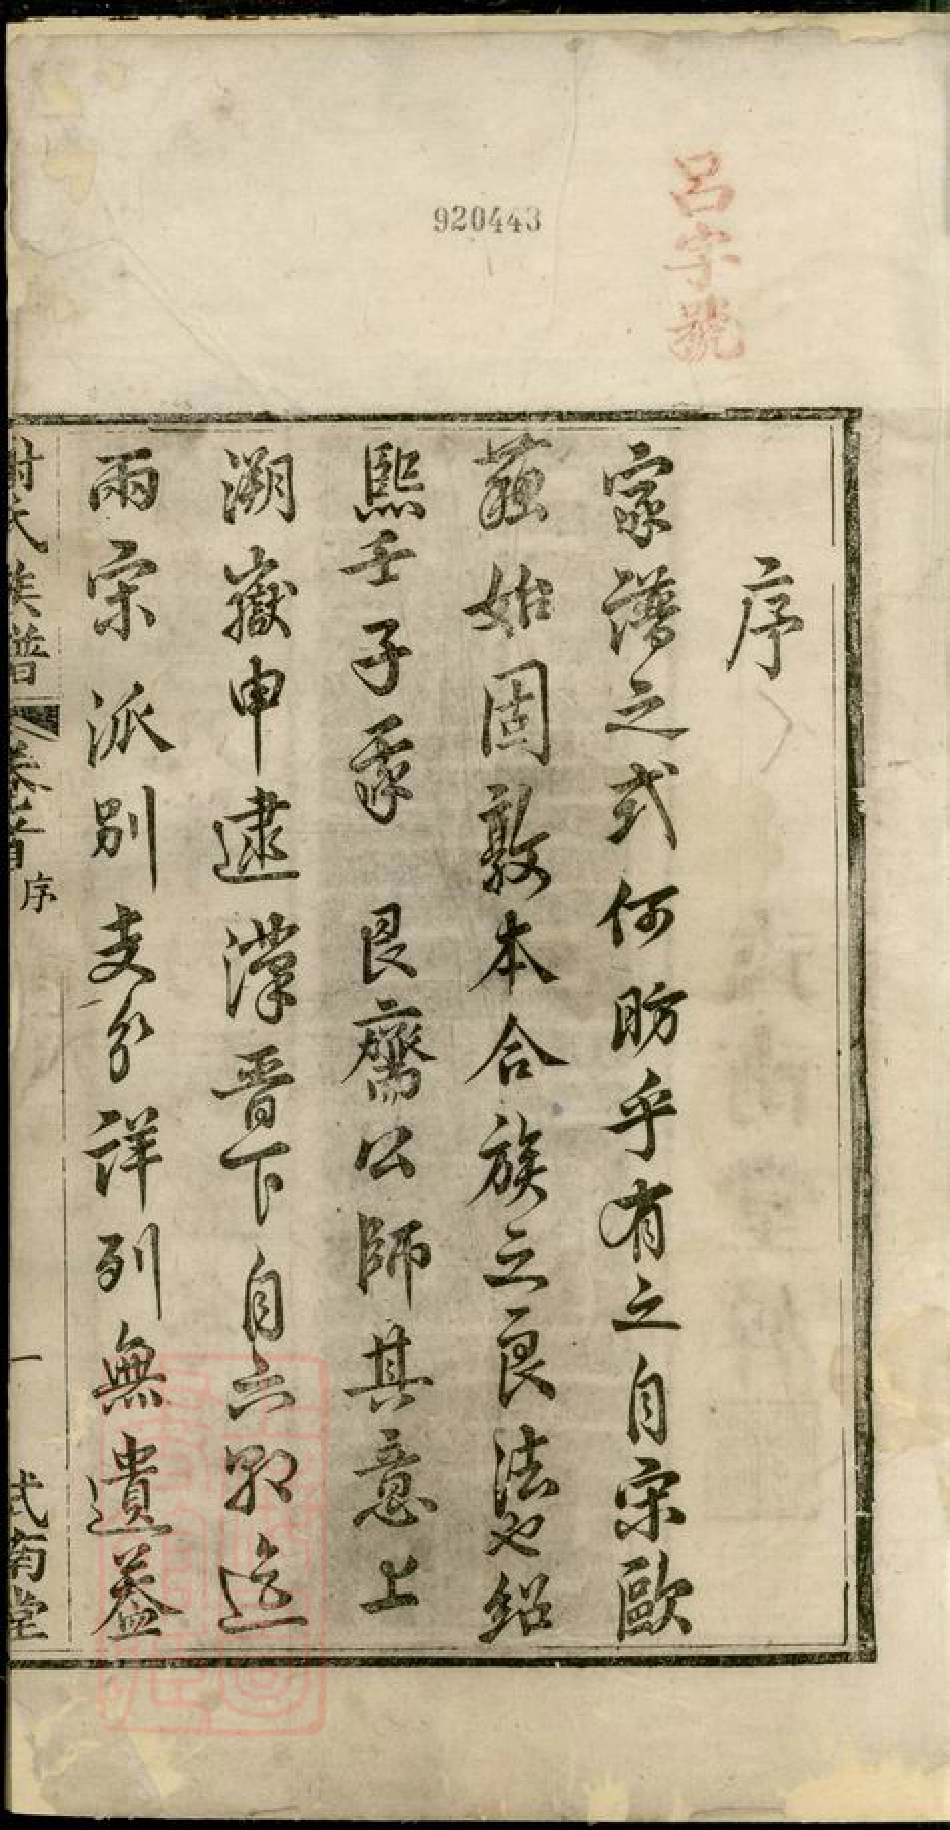 920443
呂字號
序
家譜之式何昉乎有之自宋歐
蘇始固敦本合族之良法也紹
熙壬子季艮齋公師其意上
溯嶽申逮漢晉下自六朝迄
兩宋派別支分詳列無遺蓋
謝氏族譜 卷首 序 一 式南堂